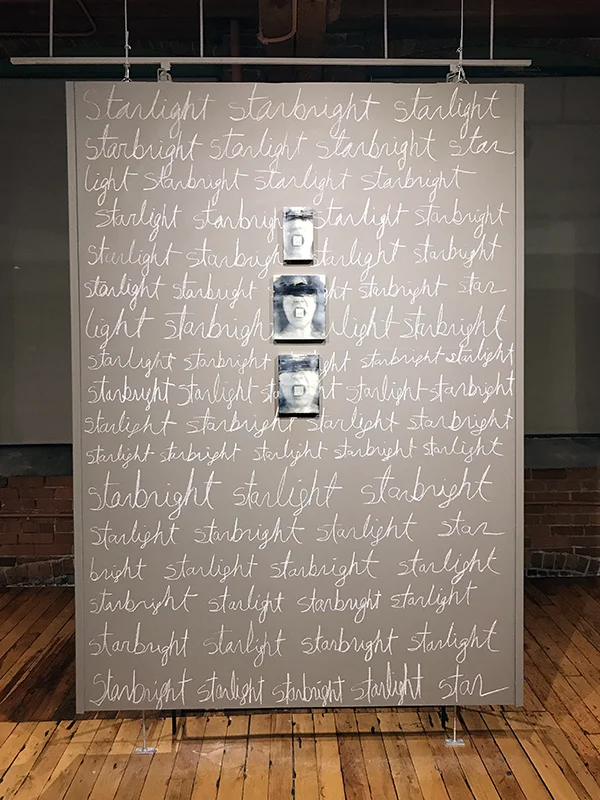 Starlight starbright starlight
starbright starlight starbright star
light starbright starlight starbright
starlight starbright starlight starbright
starlight starbright starlight starbright
starlight starbright light starbright star
light starbright starlight starbright
starlight starbright starlight starbright starlight
starbright starlight starbright starlight starbright
starlight starbright starlight starbright
starlight starbright starlight starbright starlight
starbright starlight starbright
starlight starbright starlight star
bright starlight starbright starlight
starbright starlight starbright starlight
starbright starlight starbright starlight
Starbright starlight starbright starlight star